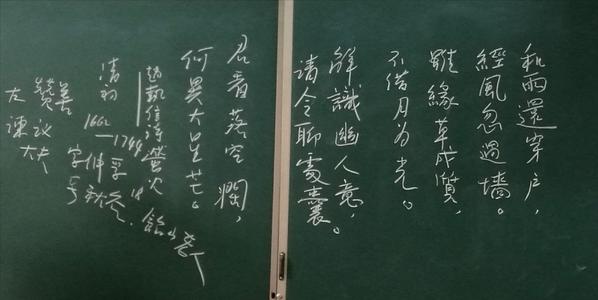 和雨還穿戶，
經風忽過墻。
雖緣草成質，
不借月为光。
解識幽人意，
請今聊處囊。
君看落空闊，
何異大星芒。
趙執信詩螢火
清初
1662—1744
字伸孚
号秋谷. 飴山老人
左贊善
諫議大夫